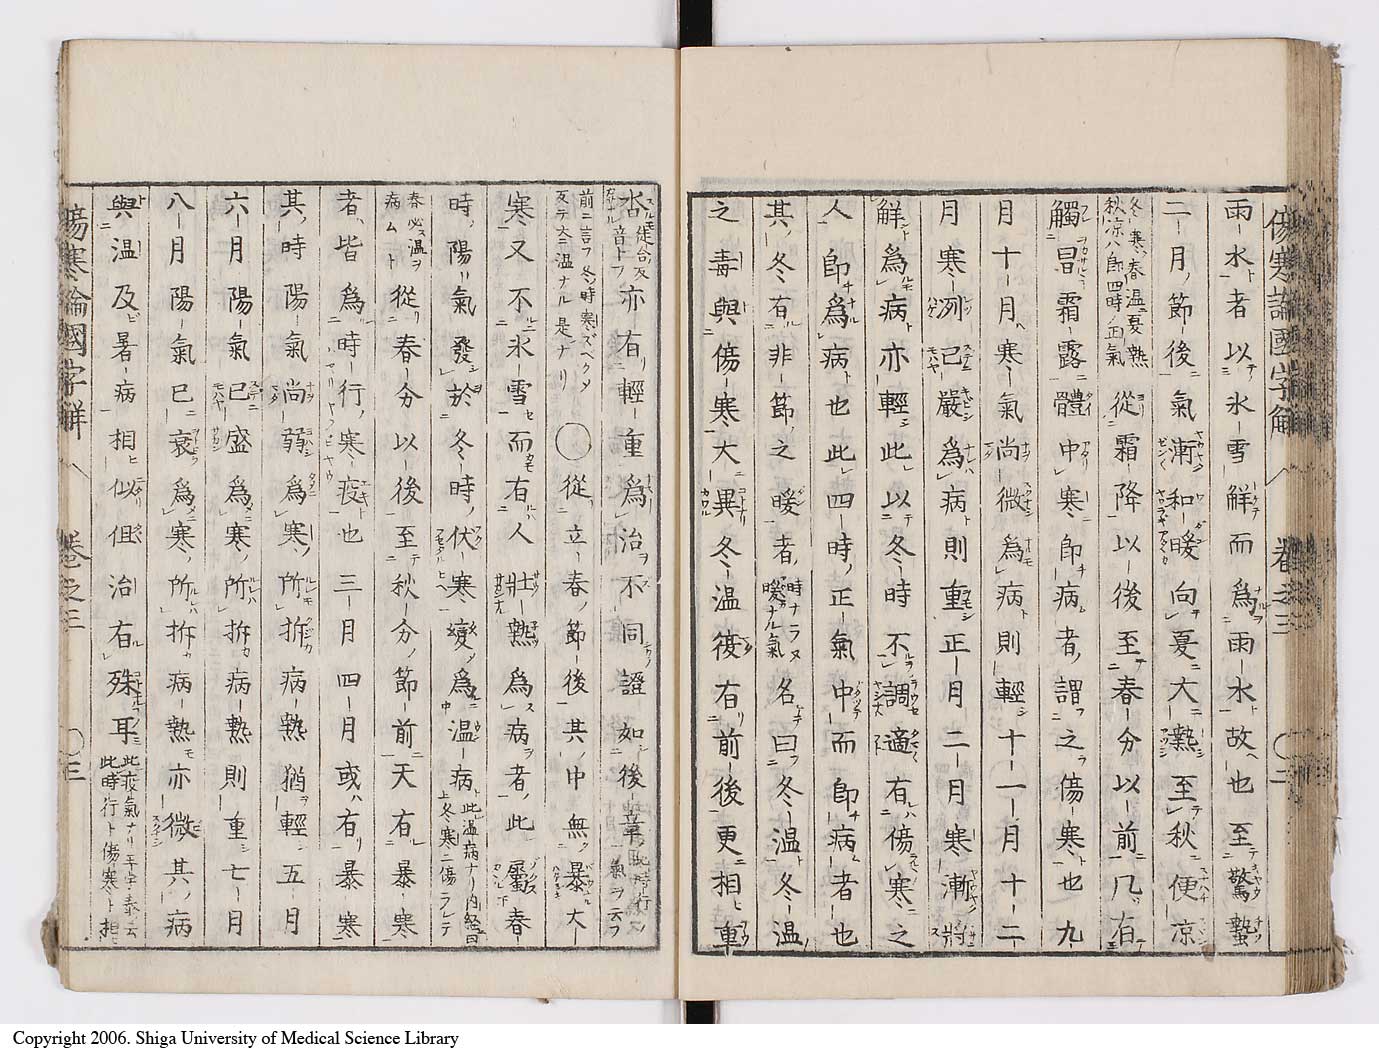 傷寒論國字解 卷之三 ○二
雨水者以氷雪解而爲雨水故也至驚蟄
二月節後氣漸和暖向夏大熱至秋便凉
冬寒春温夏熱
秋凉ハ即四時ノ正氣
從霜降以後至春分以前凡有
觸冒霜露體中寒即病者謂之傷寒也九
月十月寒氣尚微爲病則輕十一月十二
月寒冽已嚴爲病則重正月二月寒漸將
解爲病亦輕此以冬時不調適有傷寒之
人即爲病也此四時正氣中而即病者也
其冬有非節之暖者
時ナラヌ
暖ナル氣
名曰冬温冬温
之毒與傷寒大異冬温復有前後更相重
沓
徒合反
音トフ
亦有輕重爲治不同證如後章
此時行ノ
氣ヲ云フ
前ニ言フ冬ノ時寒ズベクメ
反テ大ニ温ナル是ナリ
○從立春節後其中無暴大
寒又不氷雪而有人壯熱爲病者此屬春
時陽氣發於冬時伏寒變爲温病
此温病ナリ内経曰
冬寒ニ傷ラレテ
春必ス温ヲ
病ムト
從春分以後至秋分節前天有暴寒
者皆爲時行寒疫也三月四月或有暴寒
其時陽氣尚弱爲寒所折病熱猶輕五月
六月陽氣已盛爲寒所折病熱則重七月
八月陽氣已衰爲寒所折病熱亦微其病
與温及暑病相似但治有殊耳
此疫氣ナリ
此時行ト傷寒ト相
傷寒論國字解 卷之三 ○三
Copyright 2006. Shiga University of Medical Science Library